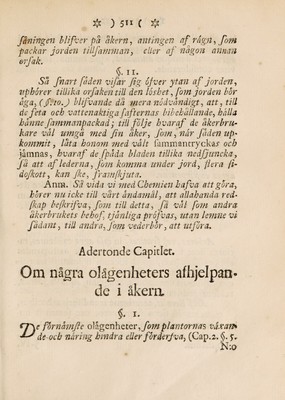 ☼ ) 511 ( ☼
ſåningen blifver på åkern, antingen af rågn, ſom
packar jorden tillſamman, eller af någon annan
orſak.
§. 11.
Så ſnart ſåden viſar ſig öfver ytan af jorden,
uphörer tillika orſaken till den löshet, ſom jorden bör
äga, (§to.) blifvande då mera nödvändigt, att, till
de feta och vattenaktiga ſafternas bibehållande, hålla
hänne ſammanpackad; till följe hvaraf de åkerbru-
kare väl umgå med ſin åker, ſom, när ſåden up-
kommit, låta honom med vält ſammantryckas och
jämnas, hvaraf de ſpåda bladen tillika nedſjuncka,
ſå att af lederna, ſom komma under jord, flera ſi-
doſkott, kan ſke, framſkjuta.
Anm. Så vida vi med Chemien hafva att göra,
hörer nu icke till vårt ändamål, att allahanda red-
ſkap beſkrifva, ſom till detta, ſå väl ſom andra
åkerbrukets behof, tjänliga pröfvas, utan lemne vi
ſådant, till andra, ſom vederbör, att utföra.
Adertonde Capitlet.
Om några olägenheters afhjelpan-
de i åkern.
§. 1.
De förnämſte olägenheter, ſom plantornas växan-
de och näring hindra eller förderfva, (Cap. 2. §. 5.
N:o